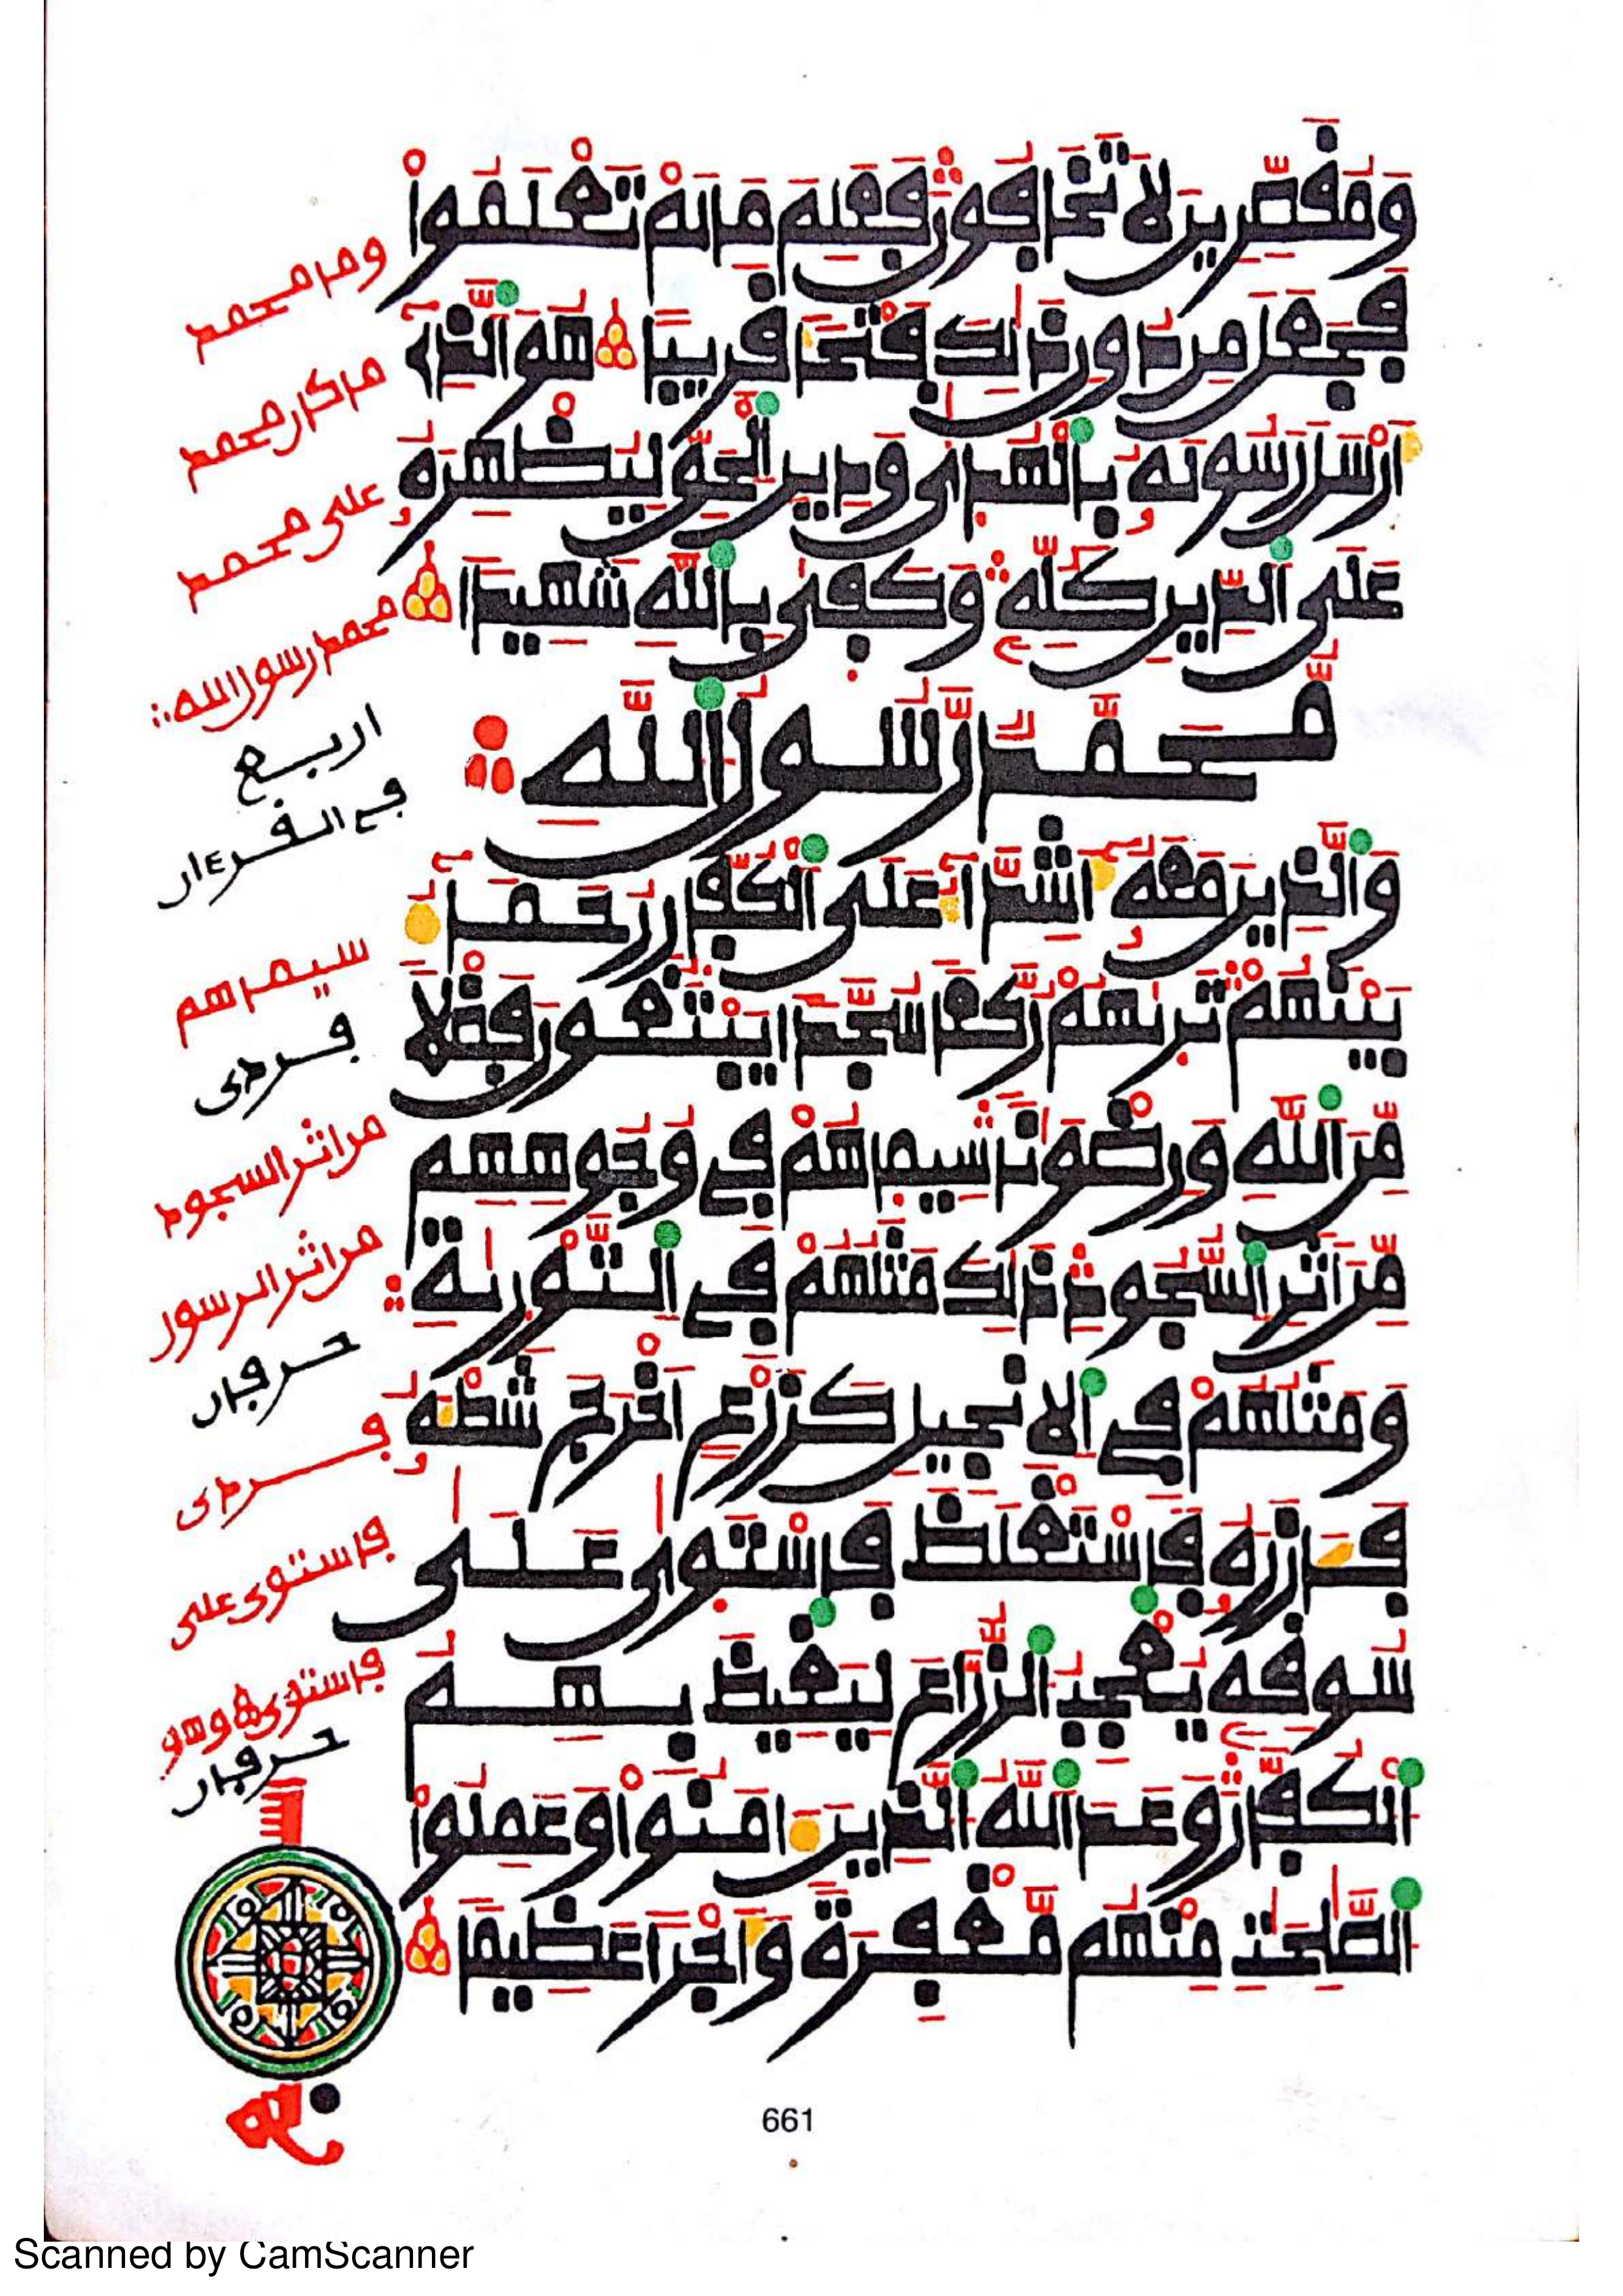 وَمُقَصِّرِينَ لَا تَخَافُونَ فَعَلِمَ مَا لَمْ تَعْلَمُواْ
فَجَعَلَ مِن دُونِ ذَٰلِكَ فَتْحاً قَرِيباً هُوَ ٱلَّذِے
أَرْسَلَ رَسُولَهُ بِٱلْهُدَىٰ وَدِينِ ٱلْحَقِّ لِيُظْهِرَهُ
عَلَى ٱلدِّينِ كُلِّهِ وَكَفَىٰ بِٱللَّهِ شَهِيداً
مُّحَمَّدٌ رَّسُولُ ٱللَّهِ
وَٱلَّذِينَ مَعَهُ أَشِدَّآءُ عَلَى ٱلْكُفَّارِ رُحَمَآءُ
بَيْنَهُمْ تَرَىٰهُمْ رُكَّعاً سُجَّداً يَبْتَغُونَ فَضْلاً
مِّنَ ٱللَّهِ وَرِضْوَٰناً سِيمَاهُمْ فِے وُجُوهِهِم
مِّنْ أَثَرِ ٱلسُّجُودِ ذَٰلِكَ مَثَلُهُمْ فِے ٱلتَّوْرَىٰةِ
وَمَثَلُهُمْ فِے ٱلْإِنجِيلِ كَزَرْعٍ أَخْرَجَ شَطْـَٔهُ
فَـَٔازَرَهُ فَاسْتَغْلَظَ فَاسْتَوَىٰ عَلَىٰ
سُوقِهِ يُعْجِبُ ٱلزُّرَّاعَ لِيَغِيظَ بِهِمُ
ٱلْكُفَّارَ وَعَدَ ٱللَّهُ ٱلَّذِينَ ءَامَنُواْ وَعَمِلُواْ
ٱلصَّٰلِحَٰتِ مِنْهُم مَّغْفِرَةً وَأَجْراً عَظِيماً
وما محمد
ما كان محمد
على محمد
محمد رسول الله
اربع
في القرءان
سيماهم
فردى
من اثر السجود
من اثر الرسول
حرفان
فردى
فاستوى على
فاستوى وهو
حرفان
661
Scanned by CamScanner